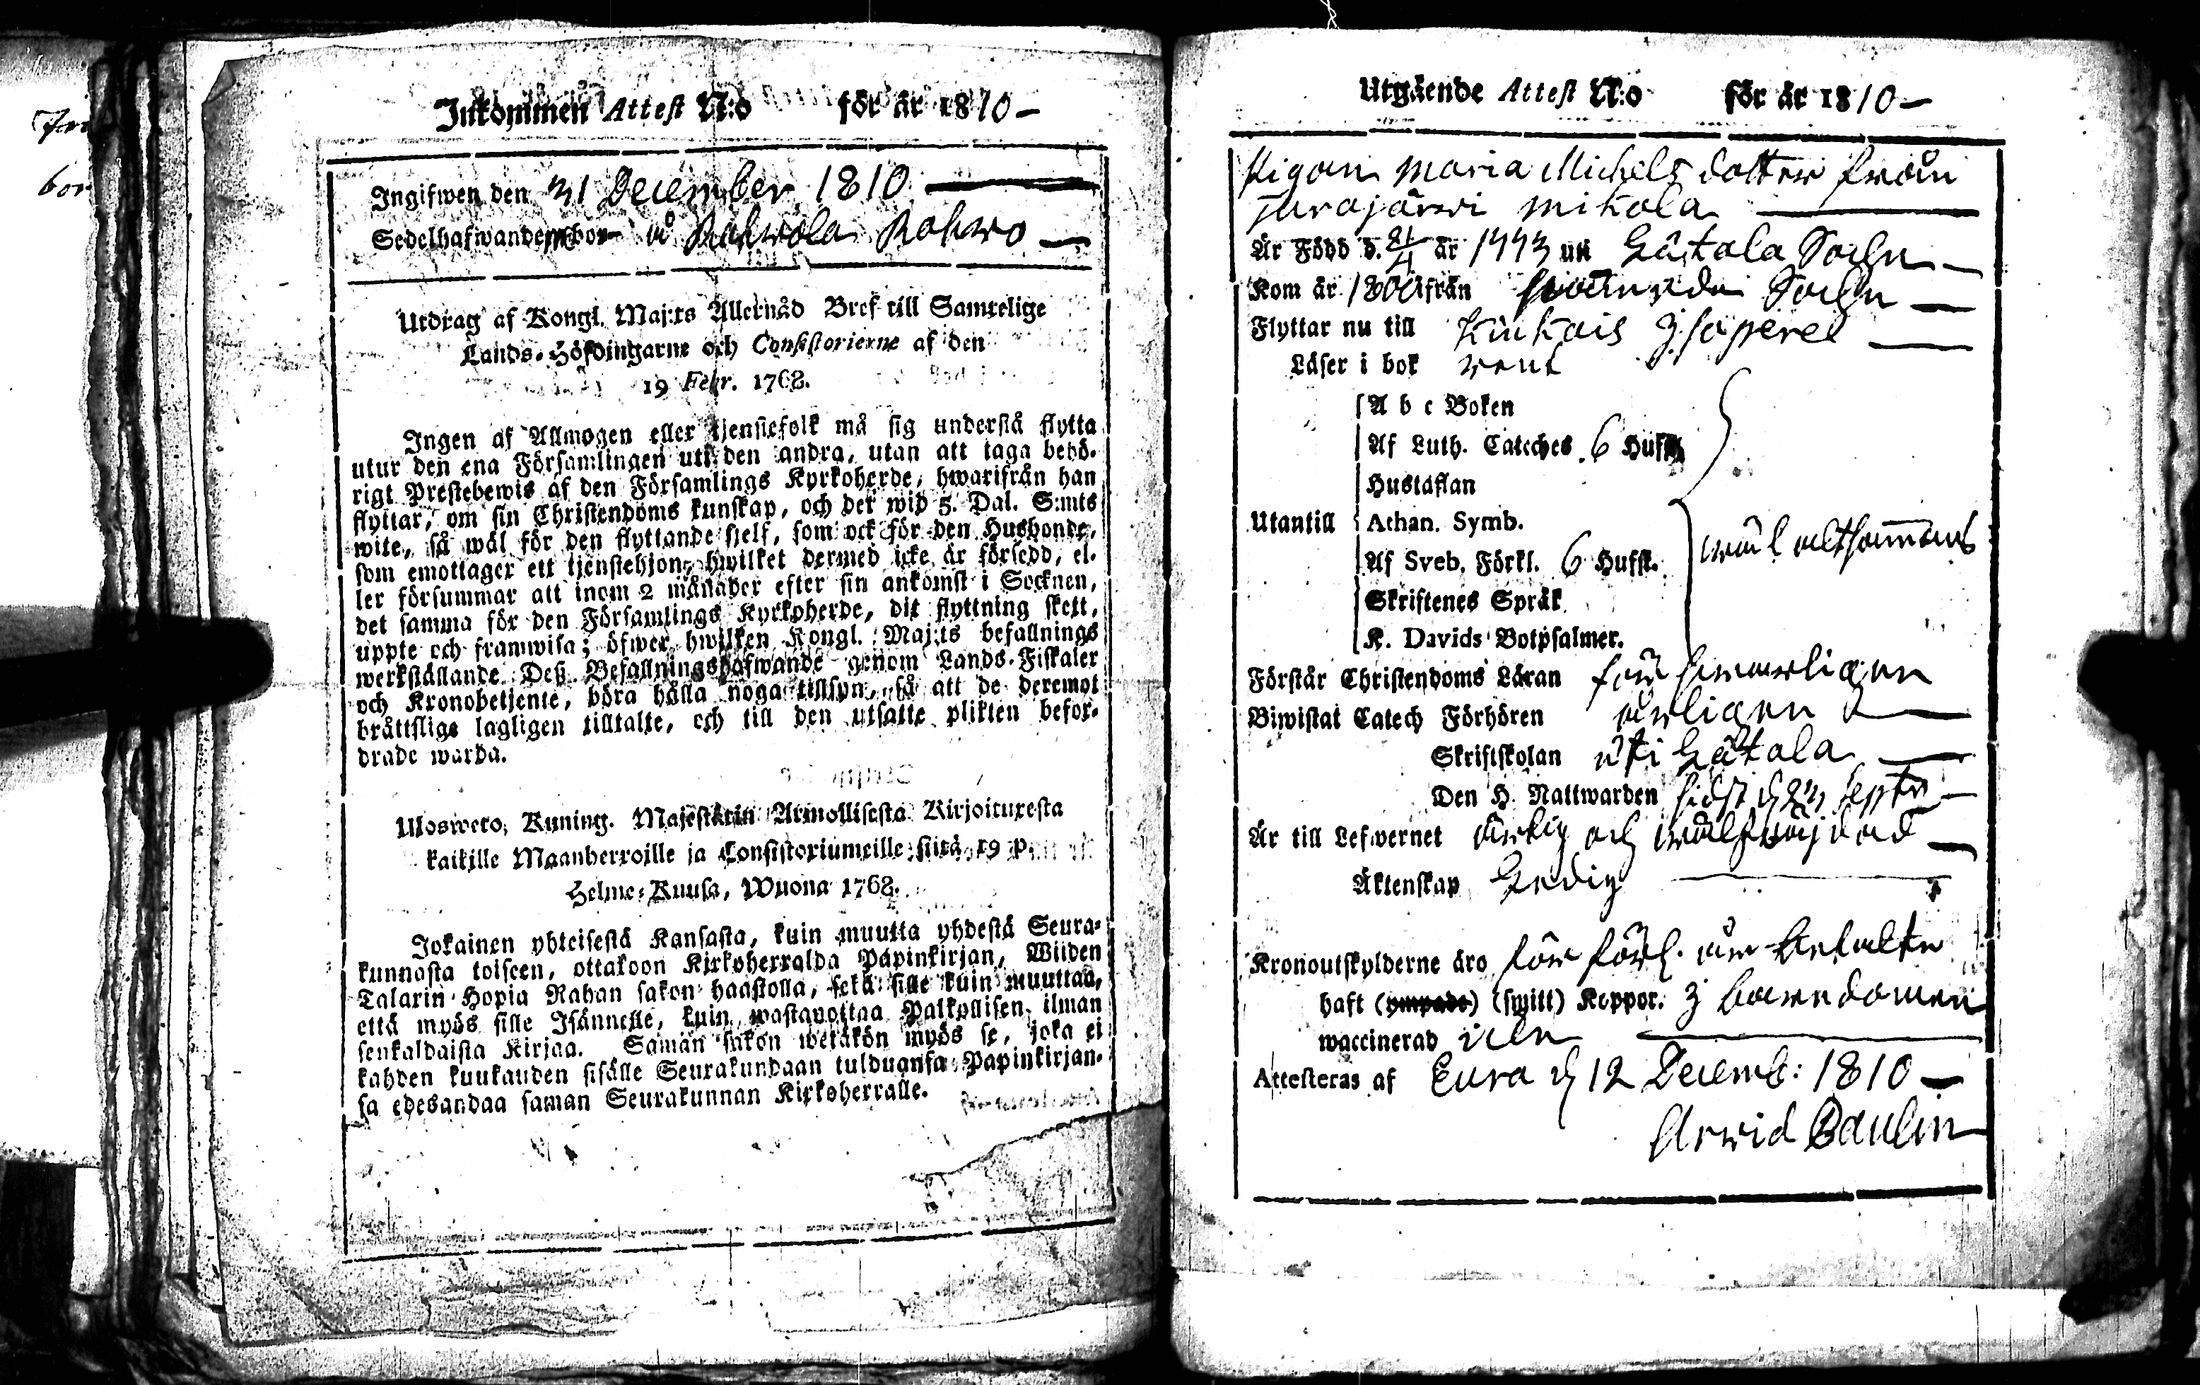 Inkommen Attest N:o för år 1810 –
Ingifwen den 31 December 1810
Sedelhafwanden bor å Rahwola Rahwo
Utdrag af Kongl. Maj:ts Allernåd Bref till Samtelige
Lands-Höfdingarne och Consistorierne af den
19 Febr. 1768.
Ingen af Allmogen eller tjenstefolk må sig understå flytta
utur den ena Församlingen uti den andra, utan att taga behö-
rigt Prestebewis af den Församlings Kyrkoherde, hwarifrån han
flyttar, om sin Christendoms kunskap, och det wid 5. Dal. S:mts
wite, så wäl för den flyttande sjelf, som ock för den Husbonde,
som emottager ett tjenstehjon, hwilket dermed icke är försedd, el-
ler försummar att inom 2 månader efter sin ankomst i Socknen,
det samma för den Församlings Kyrkoherde, dit flyttning skett,
uppte och framwisa; öfwer hwilken Kongl. Maj:ts befallnings
werkställande Deß Befallningshafwande genom Lands-Fiskaler
och Kronobetjente, böra hålla noga tillsyn, så att de deremot
bråttslige lagligen tilltalte, och till den utsatte plikten befor-
drade warda.
Uloswето, Kuning. Majestätin Armollisesta Kirjoituxesta
kaikille Maanherroille ja Consistoriumeille siitä 19 p.
Helme-Kuusa, Wuona 1768.
Jokainen yhteisestä Kansasta, kuin muutta yhdestä Seura-
kunnasta toiseen, ottakoon Kirkoherralda Papinkirjan, Wiiden
Talarin Hopia Rahan sakon haastolla, sekä sille kuin muuttaa,
että myös sille Isännelle, kuin wastanottaa Palkollisen ilman
senkaldaista Kirjaa. Saman sakon wetäkön myös se, joka ei
kahden kuukauden sisälle Seurakundaan tulduansa Papinkirjan-
sa edesandaa saman Seurakunnan Kirkoherralle.
Utgående Attest N:o för år 1810 –
Pigan Maria Michelsdotter från
Turajärwi Mikola
Är Född d. 21/4 år 1773 uti Låtala Sochn
Kom år 1800 ifrån Sochn
Flyttar nu till Kiukais
Läser i bok rent
A b c Boken
Af Luth. Cateches. 6 Hufst.
Hustaflan
Utantill Athan. Symb.
Af Sveb. Förkl. 6 Hufst. wäl altsammans
Skriftenes Språk
K. Davids Botpsalmer.
Förstår Christendoms Läran försvarligen
Biwistat Catech Förhören årligen
Skriftskolan uti Låtala
Den H. Nattwarden sidst d 23 Septr
Är till Lefwernet ärlig och wälfräjdad
Äktenskap Ledig
Kronoutskylderne äro för förl. år betalte
haft (ympade) (smitt) Koppor. i barndomen
waccinerad
Attesteras af Eura d 12 Decemb: 1810 –
Arwid Paulin